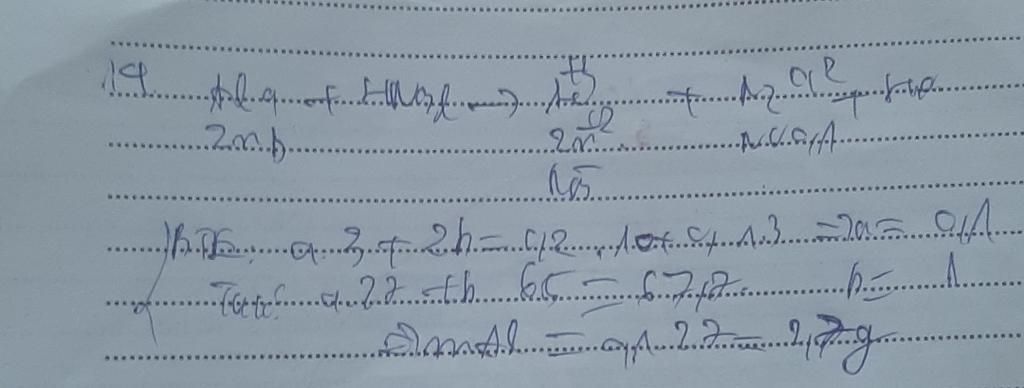 19 Al a + HNO3 → Al +3 + N2 0,2 + H2O
Zn b Zn +2 NO 0,1
NO3-
BTE: a.3 + 2b = 0,2.10 + 0,1.3 => a = 0,1
a.27 + b 65 = 67,7 b = 1
=> mAl = 0,1.27 = 2,7g